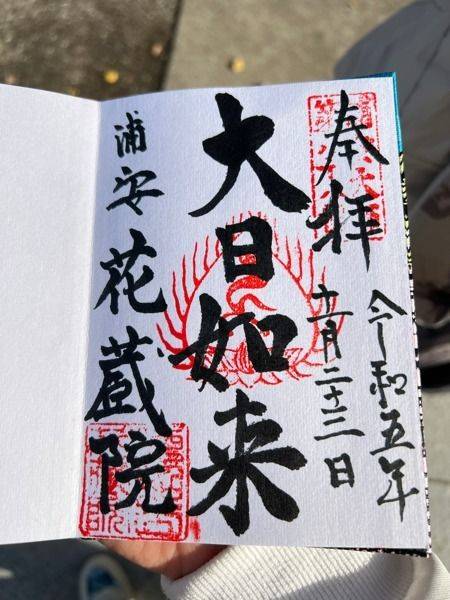 奉拝
令和五年
月二十三日
大日如来
浦安 花蔵院